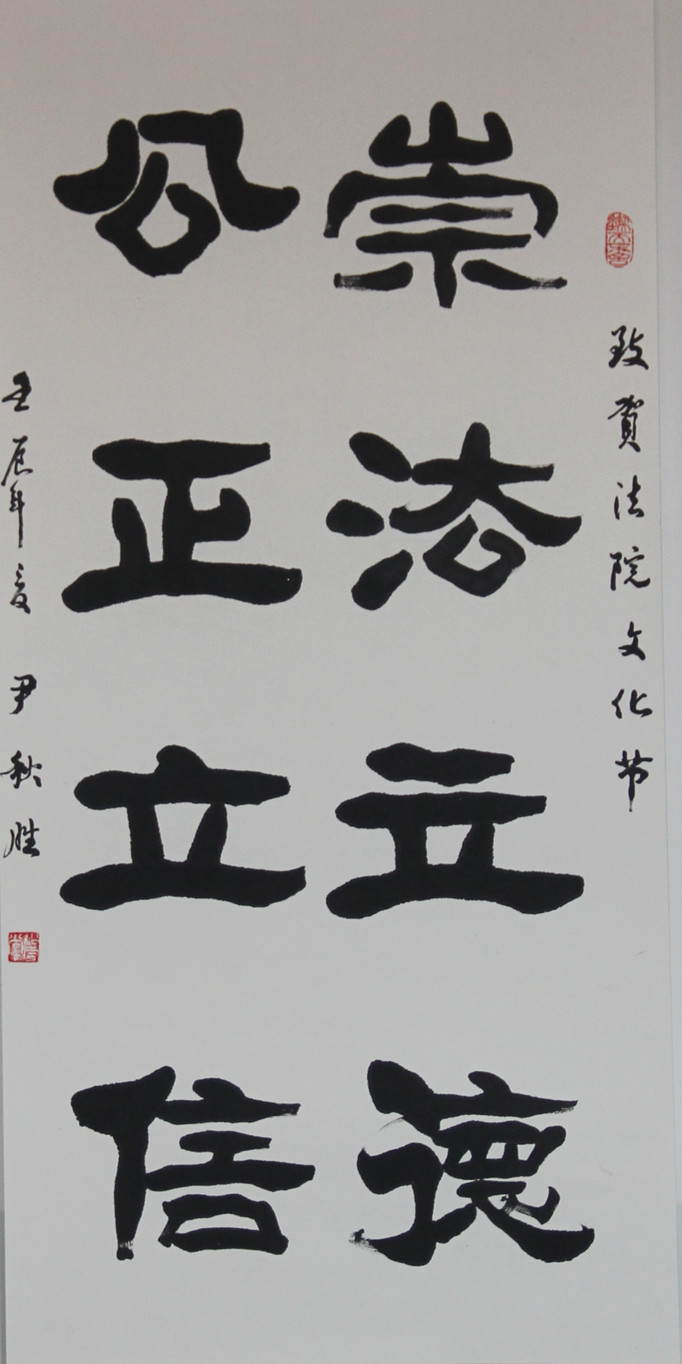 致贺法院文化节
崇法立德
公正立信
壬辰年夏 尹秋胜